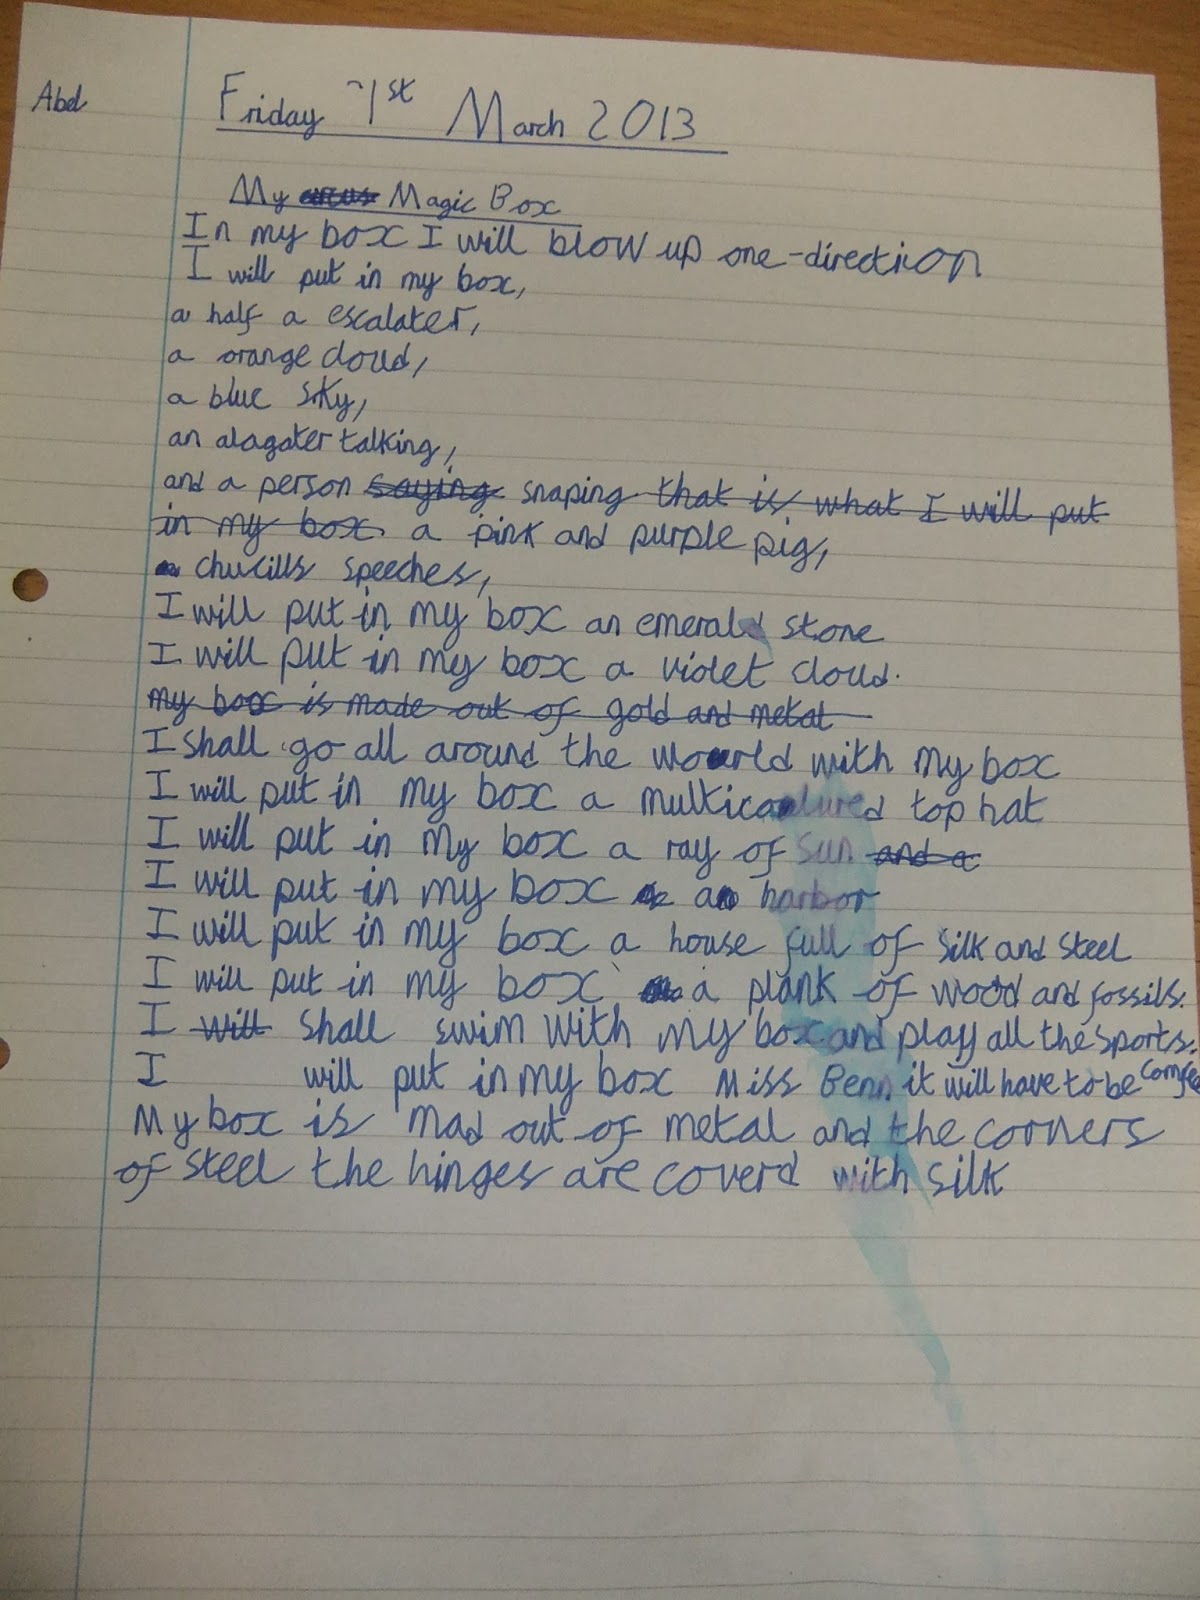 Abel
Friday 1st March 2013
My Magic Box
In my box I will blow up one-direction
I will put in my box,
a half a escalater,
a orange cloud,
a blue sky,
an alagater talking,
and a person saying snaping that is what I will put
in my box a pink and purple pig,
chucills speeches,
I will put in my box an emerald stone
I will put in my box a violet cloud.
my box is made out of gold and metal
I shall go all around the wourld with my box
I will put in my box a multicaolured top hat
I will put in my box a ray of sun and a
I will put in my box a harbor
I will put in my box a house full of silk and steel
I will put in my box a plank of wood and fossils.
I will shall swim with my box and play all the sports.
I will put in my box Miss Benn it will have to be
My box is mad out of metal and the corners
of steel the hinges are coverd with silk